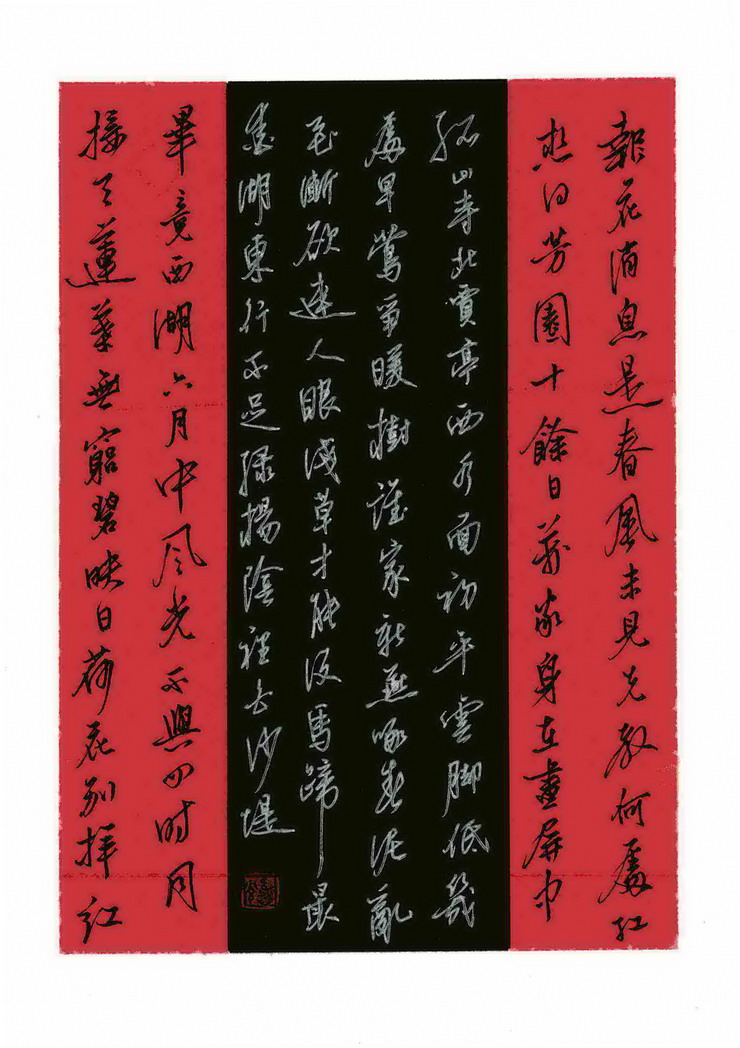 報花消息是春風未見先教何處紅
想得芳園十餘日萬家身在畫屏中
孤山寺北賈亭西水面初平雲脚低幾
處早鶯爭暖樹誰家新燕啄春泥亂
花漸欲迷人眼淺草才能没馬蹄最
愛湖東行不足綠楊陰裡白沙堤
畢竟西湖六月中风光不與四時同
接天蓮葉無窮碧映日荷花別樣紅